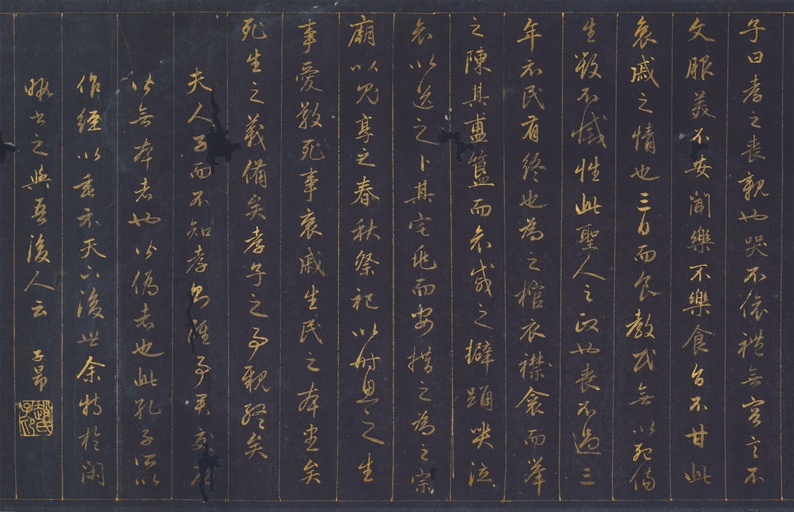 子曰孝之喪親也哭不偯禮無容言不
文服美不安聞樂不樂食旨不甘此
哀戚之情也三日而食教民無以死傷
生毀不滅性此聖人之政也喪不過三
年示民有終也為之棺衣襟衾而舉
之陳其簠簋而哀戚之擗踊哭泣
哀以送之卜其宅兆而安措之為之宗
廟以鬼享之春秋祭祀以時思之生
事愛敬死事哀戚生民之本盡矣
死生之義備矣孝子之事親終矣
夫人子而不知孝雖事君交
皆無本者也皆偽者也此孔子所以
作經以垂示天下後世余特於閑
暇書之與吾後人云 子昂
趙氏子昂